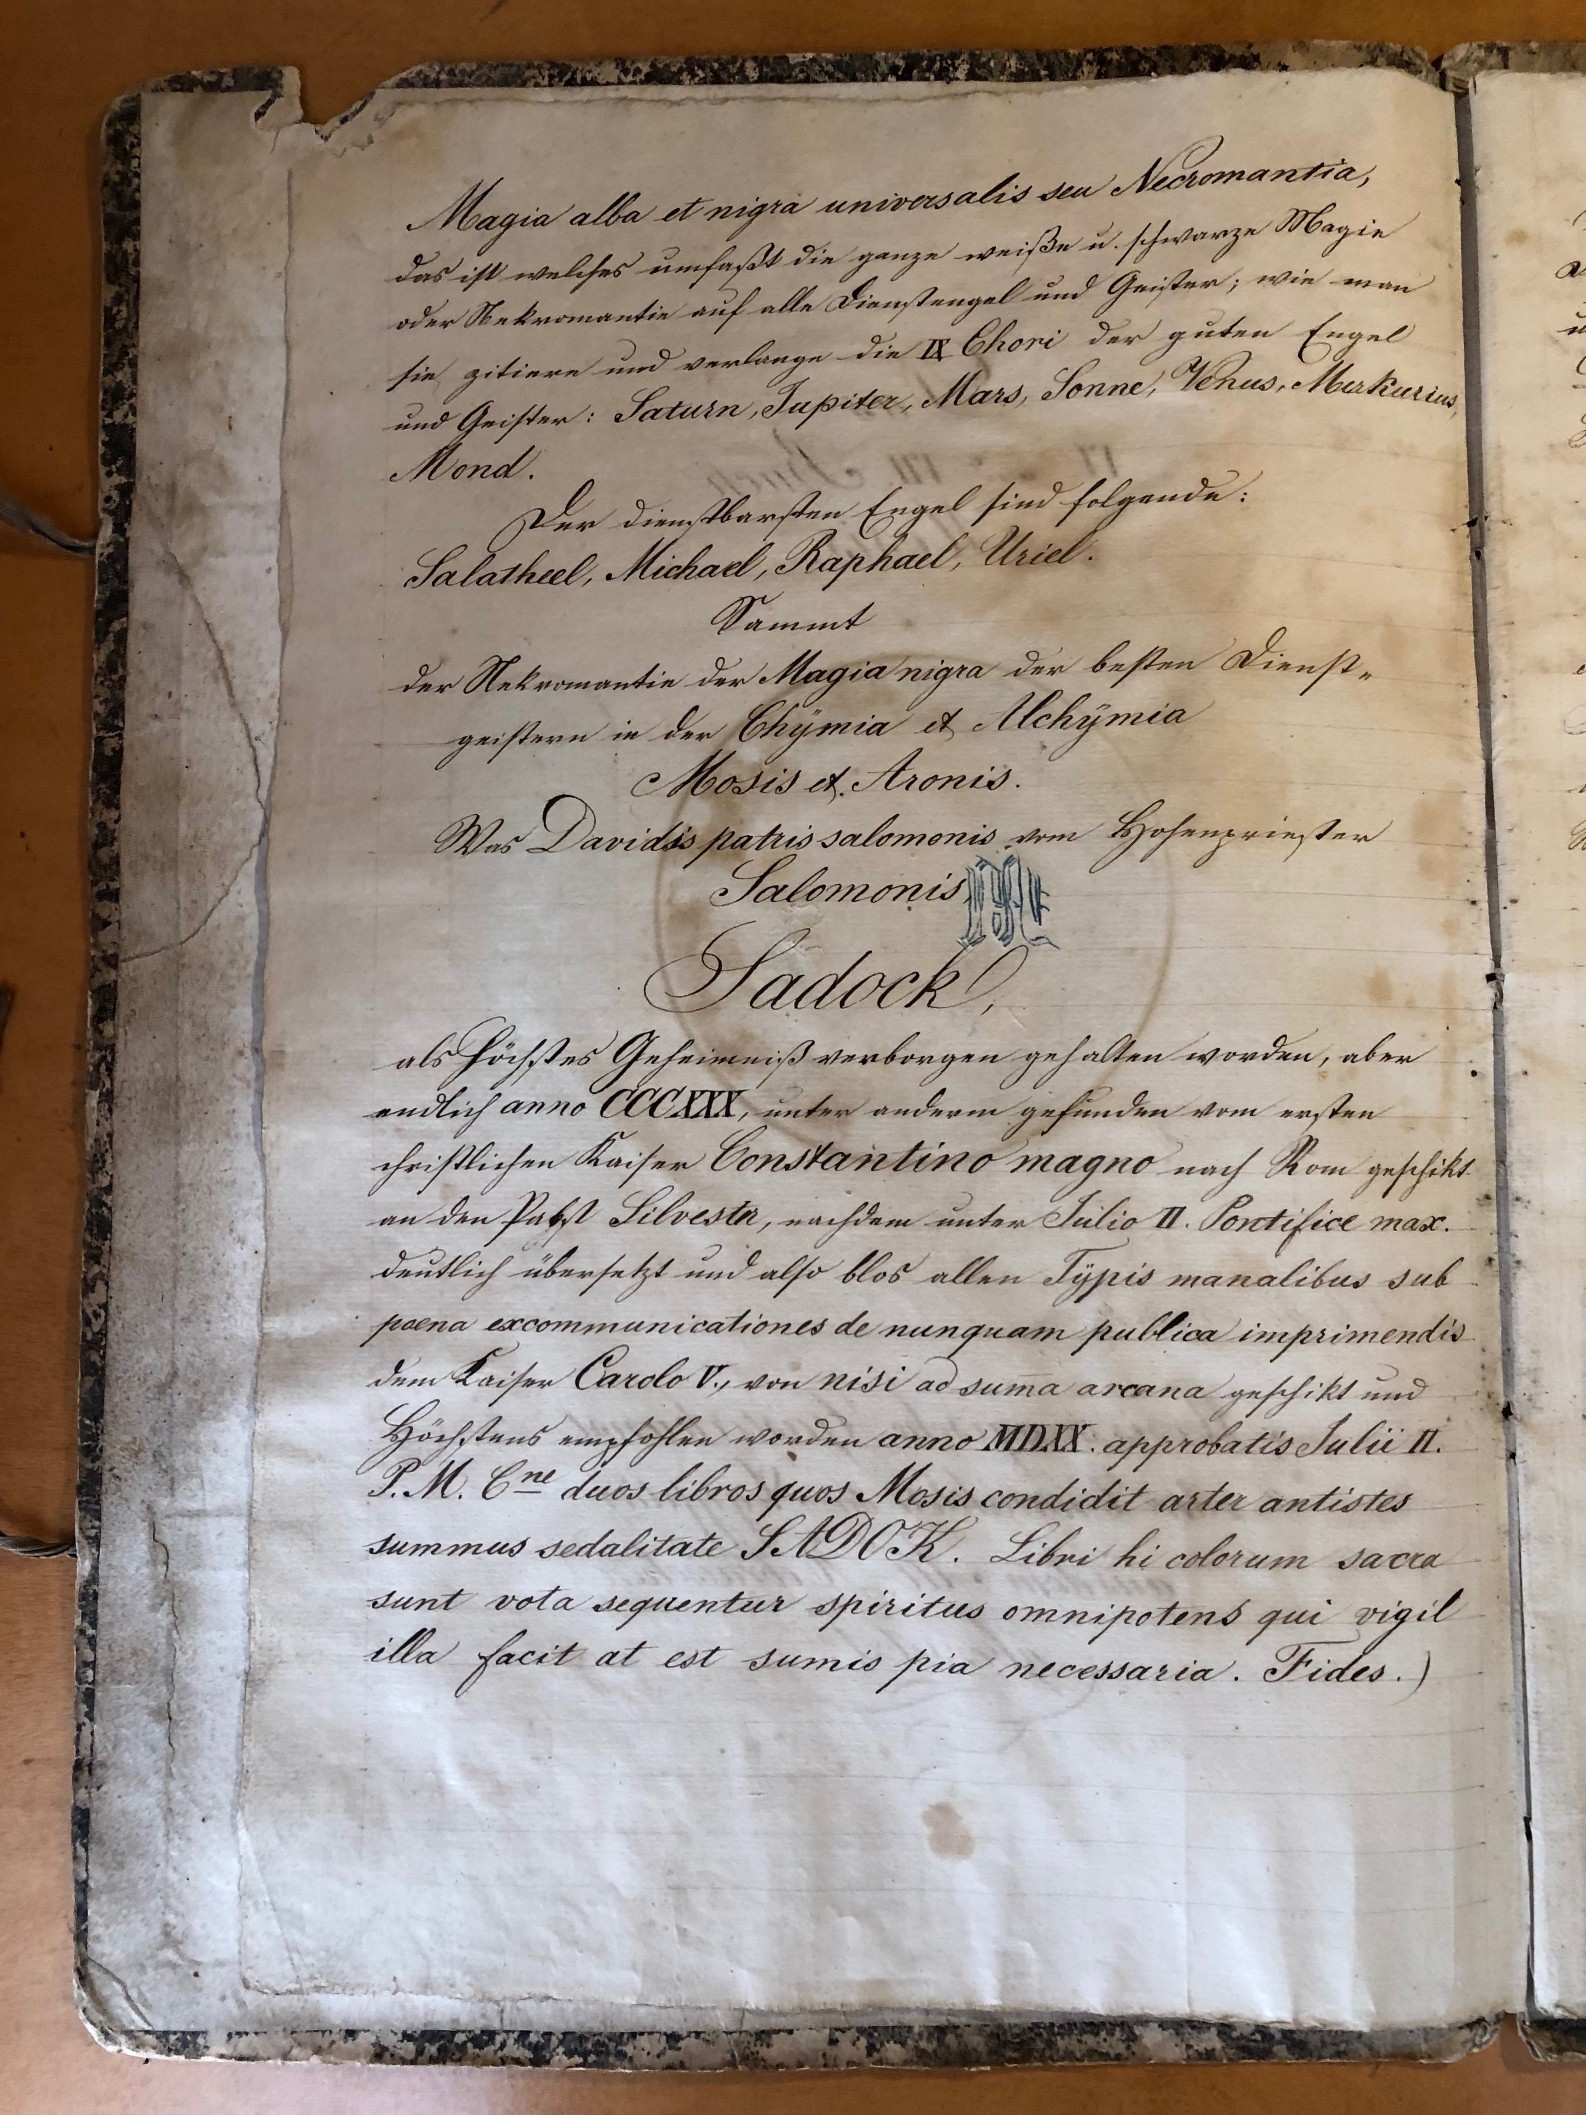 Magia alba et nigra universalis seu Necromantia,
das ist welches umfaßt die ganze weiße u. schwarze Magie
oder Nekromantie auf alle Dienstengel und Geister; wie man
sie zitiere und verlange die IX Chori der guten Engel
und Geister: Saturn, Jupiter, Mars, Sonne, Venus, Merkurius,
Mond.
Der dienstbarsten Engel sind folgende:
Salatheel, Michael, Raphael, Uriel.
Sammt
der Nekromantie der Magia nigra der besten Dienst-
geistern in der Chÿmia et Alchÿmia
Mosis et Aronis.
Was Davidis patris salomonis vom Hohenpriester
Salomonis,
Sadock,
als höchstes Geheimniß verborgen gehalten worden, aber
endlich anno CCCXXX, unter anderm gefunden vom ersten
christlichen Kaiser Constantino magno nach Rom geschikt
an den Pabst Silvester, nachdem unter Julio II. Pontifice max.
deutlich übersetzt und also blos allen Tÿpis manalibus sub
poena excommunicationes de nunquam publica imprimendis
dem Kaiser Carolo V., von nisi ad sum̄a arcana geschikt und
Höchstens empfohlen worden anno MDXX. approbatis Julii II.
P. M. Cne duos libros quos Mosis condidit arter antistes
summus sedalitate SADOK. Libri hi colorum sacra
sunt vota sequentur spiritus omnipotens qui vigil
illa facit at est sumis pia necessaria. Fides.)